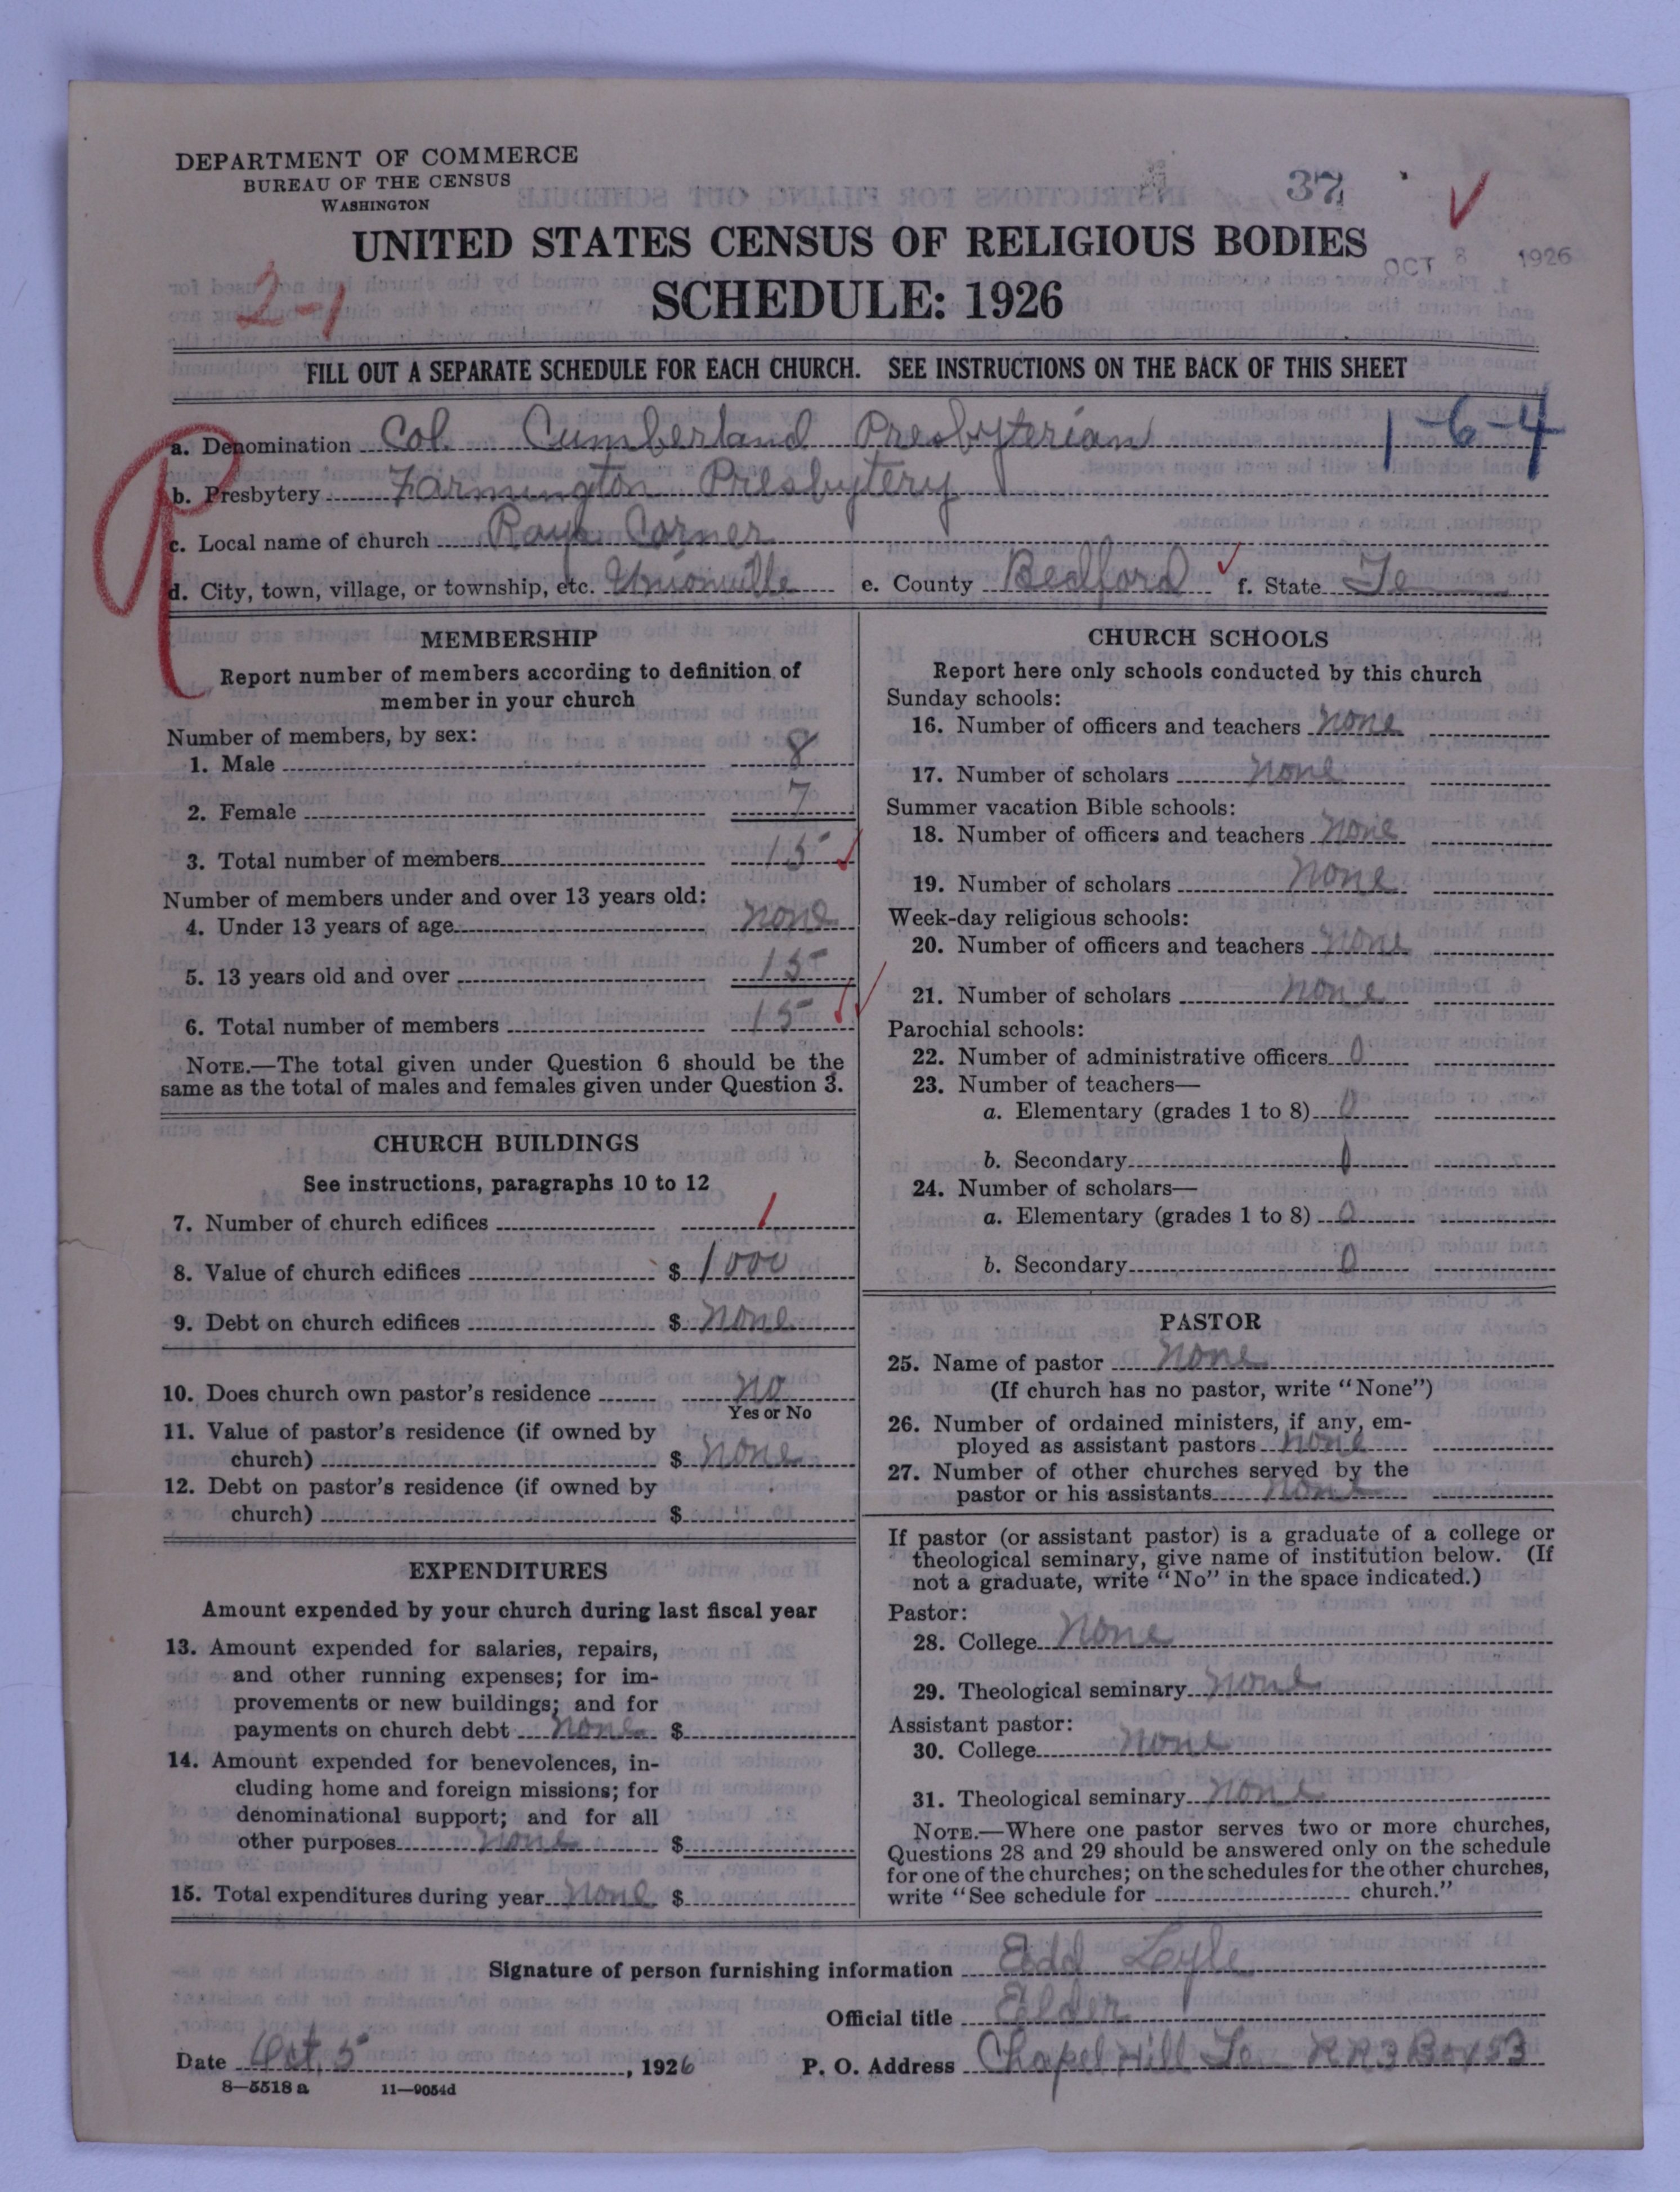 DEPARTMENT OF COMMERCE
BUREAU OF THE CENSUS
WASHINGTON
37
UNITED STATES CENSUS OF RELIGIOUS BODIES
OCT 8 1926
2-1
SCHEDULE: 1926
FILL OUT A SEPARATE SCHEDULE FOR EACH CHURCH. SEE INSTRUCTIONS ON THE BACK OF THIS SHEET
a. Denomination Col. Cumberland Presbyterian 1-6-4
b. Presbytery Farmington Presbytery
c. Local name of church Corner
d. City, town, village, or township, etc. Unionville e. County Bedford f. State Te
MEMBERSHIP
Report number of members according to definition of
member in your church
Number of members, by sex:
1. Male 8
2. Female 7
3. Total number of members 15
Number of members under and over 13 years old:
4. Under 13 years of age none
5. 13 years old and over 15
6. Total number of members 15
NOTE.—The total given under Question 6 should be the
same as the total of males and females given under Question 3.
CHURCH BUILDINGS
See instructions, paragraphs 10 to 12
7. Number of church edifices 1
8. Value of church edifices $ 1000
9. Debt on church edifices $ none
10. Does church own pastor's residence no
Yes or No
11. Value of pastor's residence (if owned by
church) $ none
12. Debt on pastor's residence (if owned by
church) $
EXPENDITURES
Amount expended by your church during last fiscal year
13. Amount expended for salaries, repairs,
and other running expenses; for im-
provements or new buildings; and for
payments on church debt none $
14. Amount expended for benevolences, in-
cluding home and foreign missions; for
denominational support; and for all
other purposes none $
15. Total expenditures during year none $
CHURCH SCHOOLS
Report here only schools conducted by this church
Sunday schools:
16. Number of officers and teachers none
17. Number of scholars none
Summer vacation Bible schools:
18. Number of officers and teachers none
19. Number of scholars none
Week-day religious schools:
20. Number of officers and teachers none
21. Number of scholars none
Parochial schools:
22. Number of administrative officers 0
23. Number of teachers—
a. Elementary (grades 1 to 8) 0
b. Secondary 0
24. Number of scholars—
a. Elementary (grades 1 to 8) 0
b. Secondary 0
PASTOR
25. Name of pastor none
(If church has no pastor, write "None")
26. Number of ordained ministers, if any, em-
ployed as assistant pastors none
27. Number of other churches served by the
pastor or his assistants none
If pastor (or assistant pastor) is a graduate of a college or
theological seminary, give name of institution below. (If
not a graduate, write "No" in the space indicated.)
Pastor:
28. College none
29. Theological seminary none
Assistant pastor:
30. College none
31. Theological seminary none
NOTE.—Where one pastor serves two or more churches,
Questions 28 and 29 should be answered only on the schedule
for one of the churches; on the schedules for the other churches,
write "See schedule for church."
Signature of person furnishing information Edd Lyle
Official title Elder
Date Oct. 5, 1926 P. O. Address Chapel Hill Te RR3 Box 53
8—5518 a 11—9054d